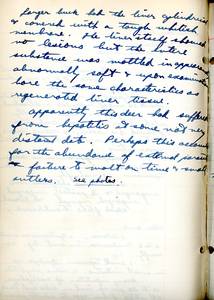 larger buck had the liver cylindrical
& covered with a tough whitish
membrane. The liver itself showed
no lesions but the entire
substance was mottled in appear
abnormally soft & upon examin
bore the same characteristics as
regenerated liver tissue.
Apparently this deer had suffered
from hepatitis at some not very
distant date. Perhaps this accounts
for the abundance of external paras
& failure to molt on time & small
antlers. See photos.